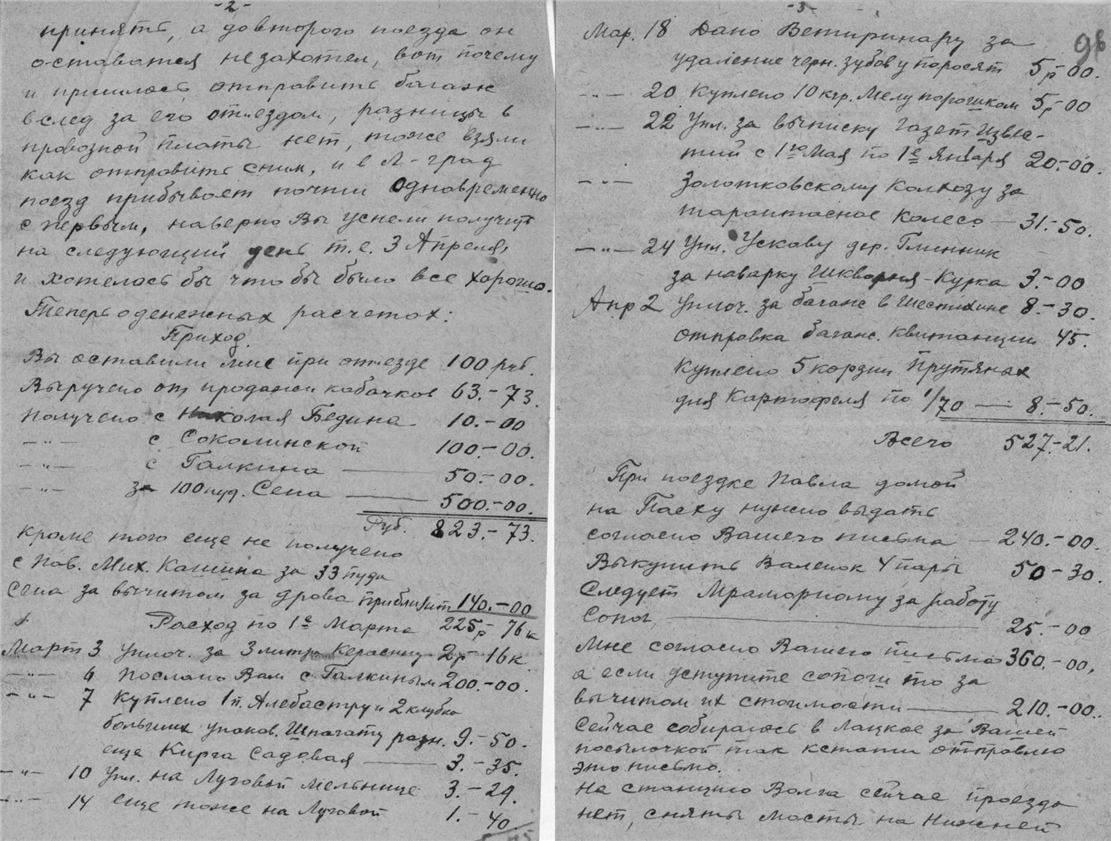 -2-
принять, а до второго поезда он
оставатся незахотел, вот почему
и пришлось отправить багаж
вслед за его отъездом, разницы в
провозной платы нет, тоже взяли
как отправить сним, и в Л-град
поезд прибывает почти одновременно
с первым, наверно Вы успели получить
на следующий день т.е. 3 Апреля,
и хотелось бы что бы было все хорошо.
Теперь о денежных расчетах:
Приход.
Вы оставили мне при отъезде 100 руб.
Выручено от продажи кабачков 63.-73.
Получено с Николая Бедина 10.-00
-"- с Соколинской 100.-00.
-"- с Галкина 50.-00.
-"- за 100 пуд. Сена 500.-00.
Руб. 823.-73.
кроме того еще не получено
с Пав. Мих. Кашина за 33 пуда
Сена за вычитом за дрова приблизит. 140.-00
Расход по 1е Марта 225р-76к
Март 3 Уплоч. за 3 литр. Керасину 2р-16к.
-"- 6 Послано Вам с Галкиным 200.-00.
-"- 7 Куплено 1п. Алебастру и 2 клубка
больших упаков. Шпагату разн. 9.-50.
еще Кирга Садовая 3.-35.
-"- 10 Упл. на Луговой мельнице 3.-29.
-"- 14 еще тоже на Луговой 1.-40
-3-
96
Мар. 18 Дано Ветиринару за
удаление черн. зубов у поросят 5р-00.
-"- 20 Куплено 10 кгр. Мелу порошком 5р-00
-"- 22 Упл. за выписку газет Извес-
тий с 1го Мая по 1е Января 20.-00.
-"- Золотковскому Колхозу за
тарантасное колесо 31.-50.
-"- 24 Упл. Ускову дер. Глинник
за наварку Шкворня-Курка 3.-00
Апр 2 Уплоч. за багаж в Шестихине 8.-30.
отправка багаж. квитанции 45.
Куплено 5 корзин Прутяных
для Картофеля по 1/70 8.-50.
Всего 527-21.
При поездке Павла домой
на Пасху нужно выдать
согласно Вашего письма 240.-00.
Выкупить Валенок 4 пары 50-30.
Следует Мраморному за работу
Сапог 25.-00
Мне согласно Вашего письма 360.-00,
а если уступите сапоги то за
вычитом их стоимости 210.-00.
Сейчас собираюсь в Лацкое за Вашей
посылочкой так кстати отправлю
это письмо.
На станцию Волга сейчас проезда
нет, сняты мосты на Нижней